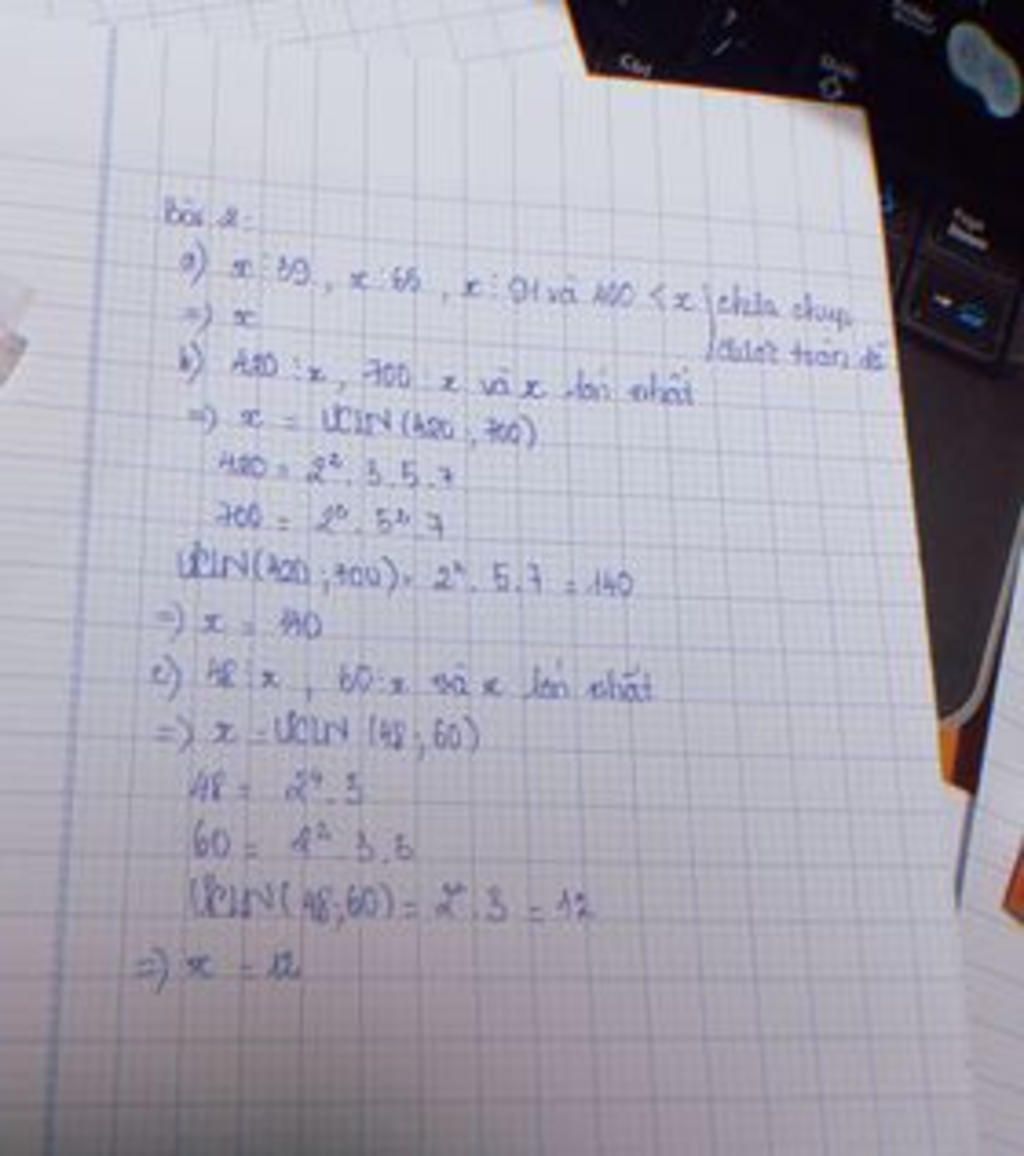 Bài 2:
a) x ⋮ 39, x ⋮ 65, x ⋮ 91 và 400 < x } chưa chụp
=> x } được toàn đề
b) 420 ⋮ x, 700 ⋮ x và x lớn nhất
=> x = ƯCLN(420; 700)
420 = 2². 3. 5. 7
700 = 2². 5². 7
ƯCLN(420; 700) = 2². 5. 7 = 140
=> x = 140
c) 48 ⋮ x, 60 ⋮ x và x lớn nhất
=> x = ƯCLN (48; 60)
48 = 2⁴. 3
60 = 2². 3. 5
ƯCLN(48; 60) = 2². 3 = 12
=> x = 12
Ctrl
Shift